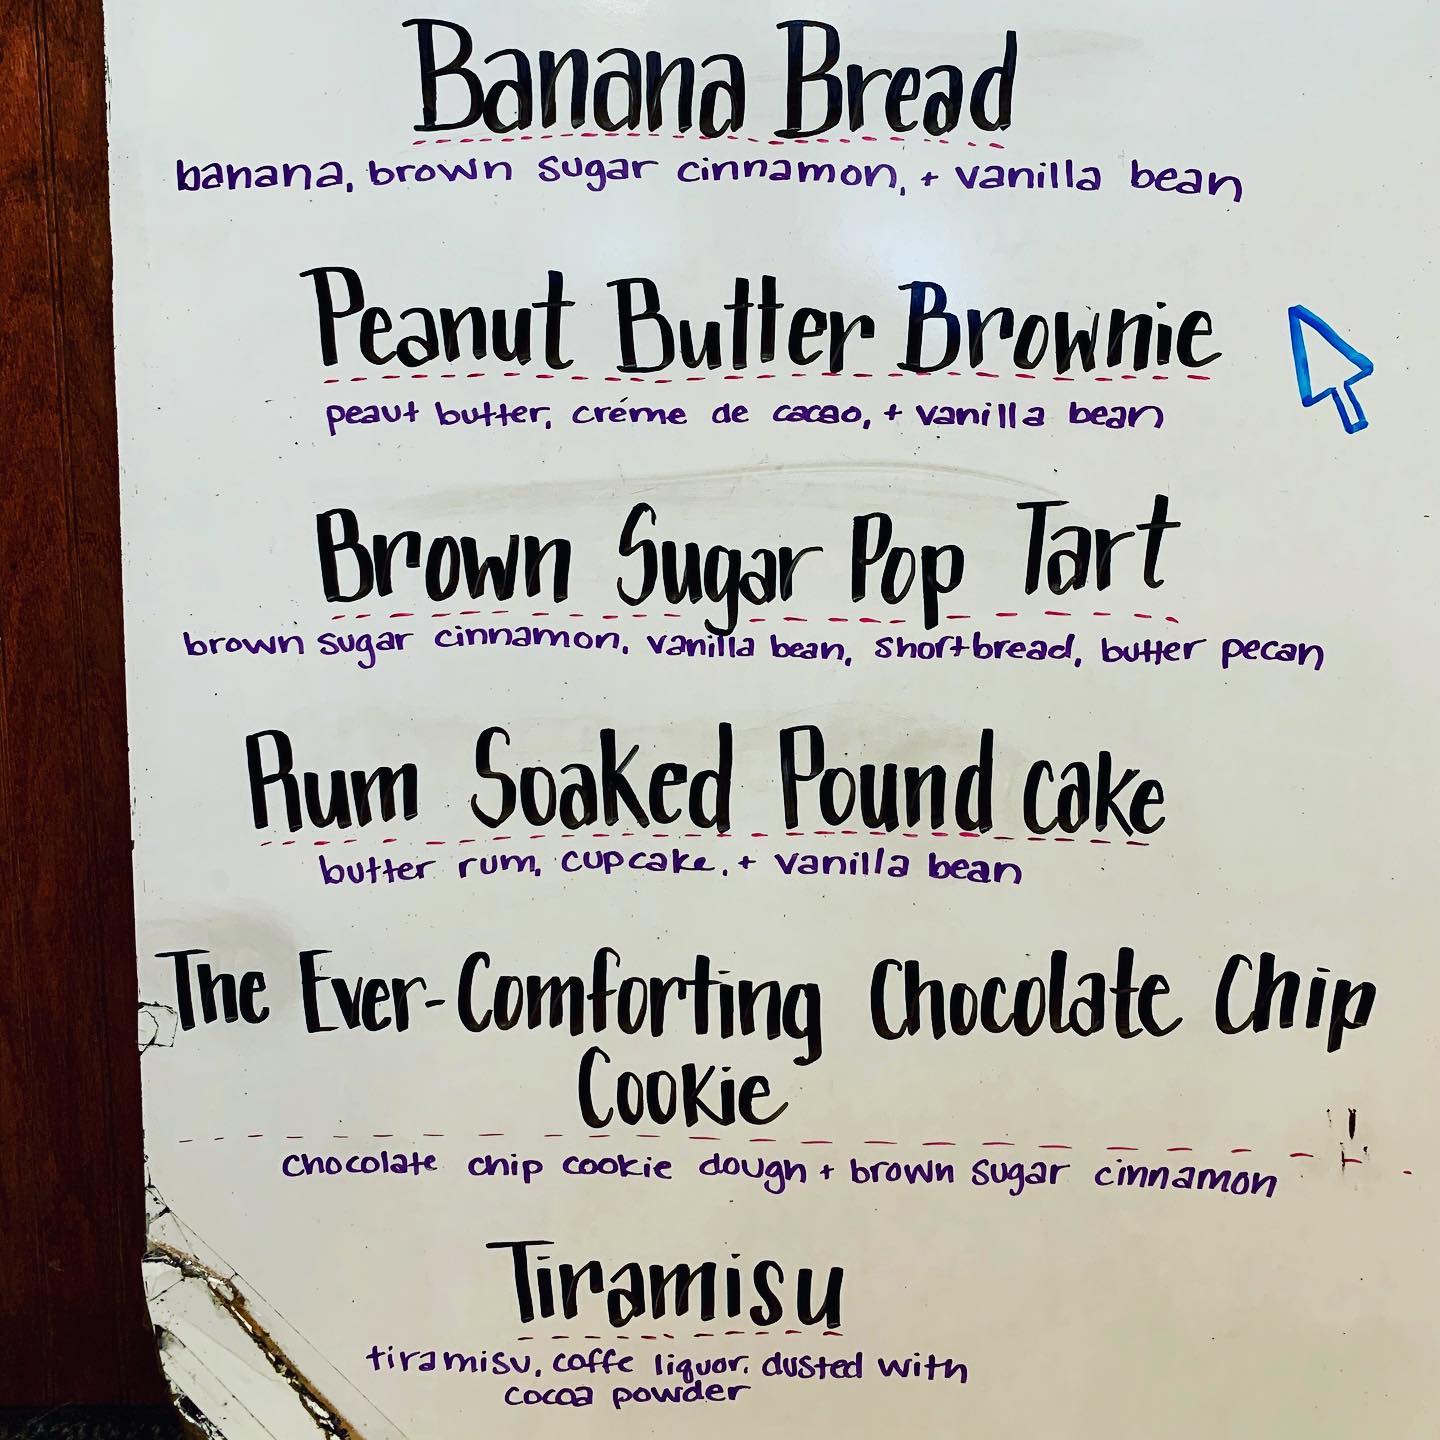 Banana Bread
banana, brown sugar cinnamon, + vanilla bean
Peanut Butter Brownie
peaut butter, créme de cacao, + vanilla bean
Brown Sugar Pop Tart
brown sugar cinnamon, vanilla bean, shortbread, butter pecan
Rum Soaked Pound cake
butter rum, cupcake, + vanilla bean
The Ever-Comforting Chocolate Chip
Cookie
chocolate chip cookie dough + brown sugar cinnamon
Tiramisu
tiramisu, coffe liquor. dusted with
cocoa powder